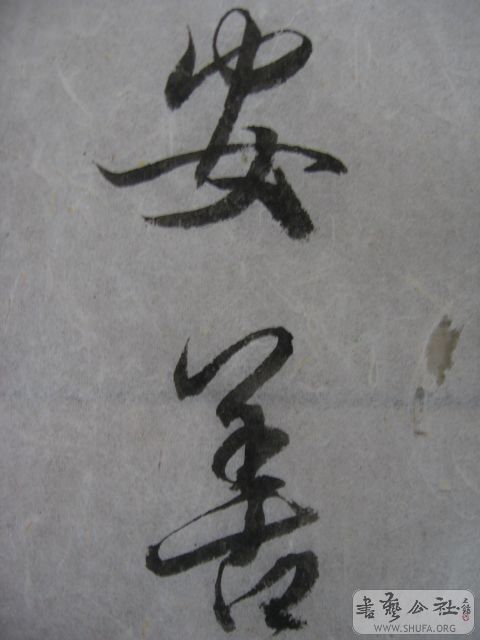 安善
書藝公社
WWW.SHUFA.ORG